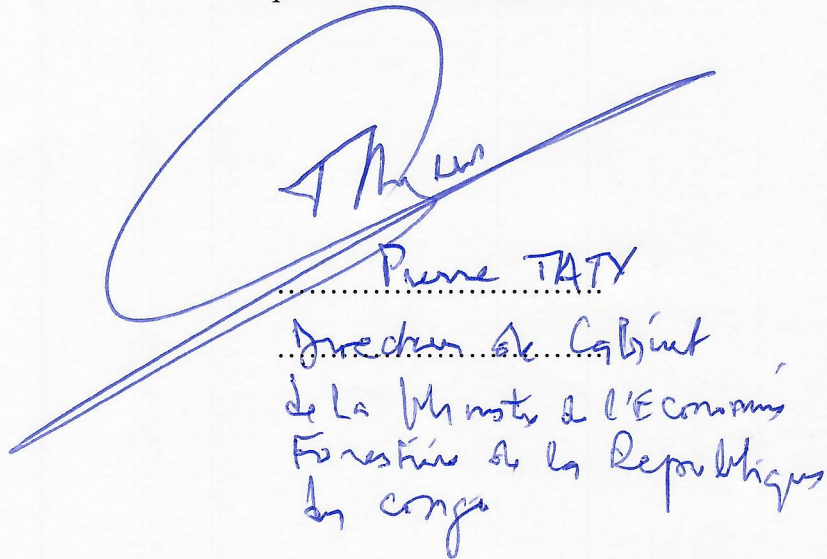 Pierre TATY
Directeur de Cabinet
de La Ministre de l'Economie
Forestière de la Republique
du Congo